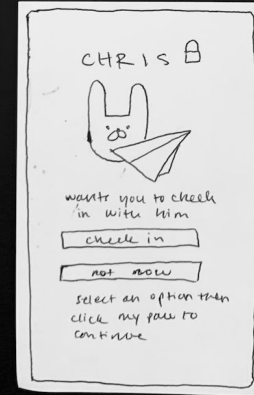 CHRIS
wants you to check
in with him
check in
not now
select an option then
click my paw to
continue